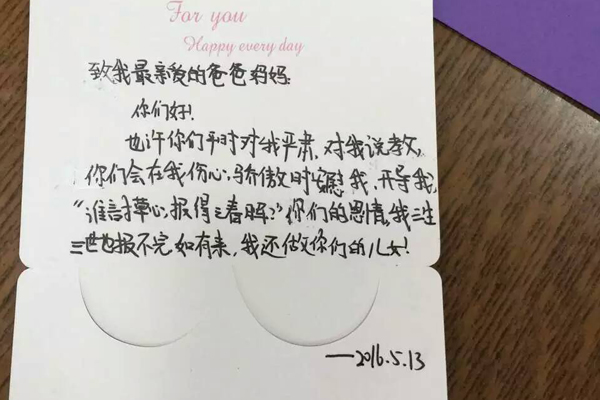 For you
Happy every day
致我最亲爱的爸爸妈妈:
你们好!
也许你们平时对我严肃,对我说教,
你们会在我伤心,骄傲时安慰我,开导我,
“谁言寸草心,报得三春晖?”你们的恩情,我三生
三世也报不完如有来,我还做你们的儿女!
—2016.5.13